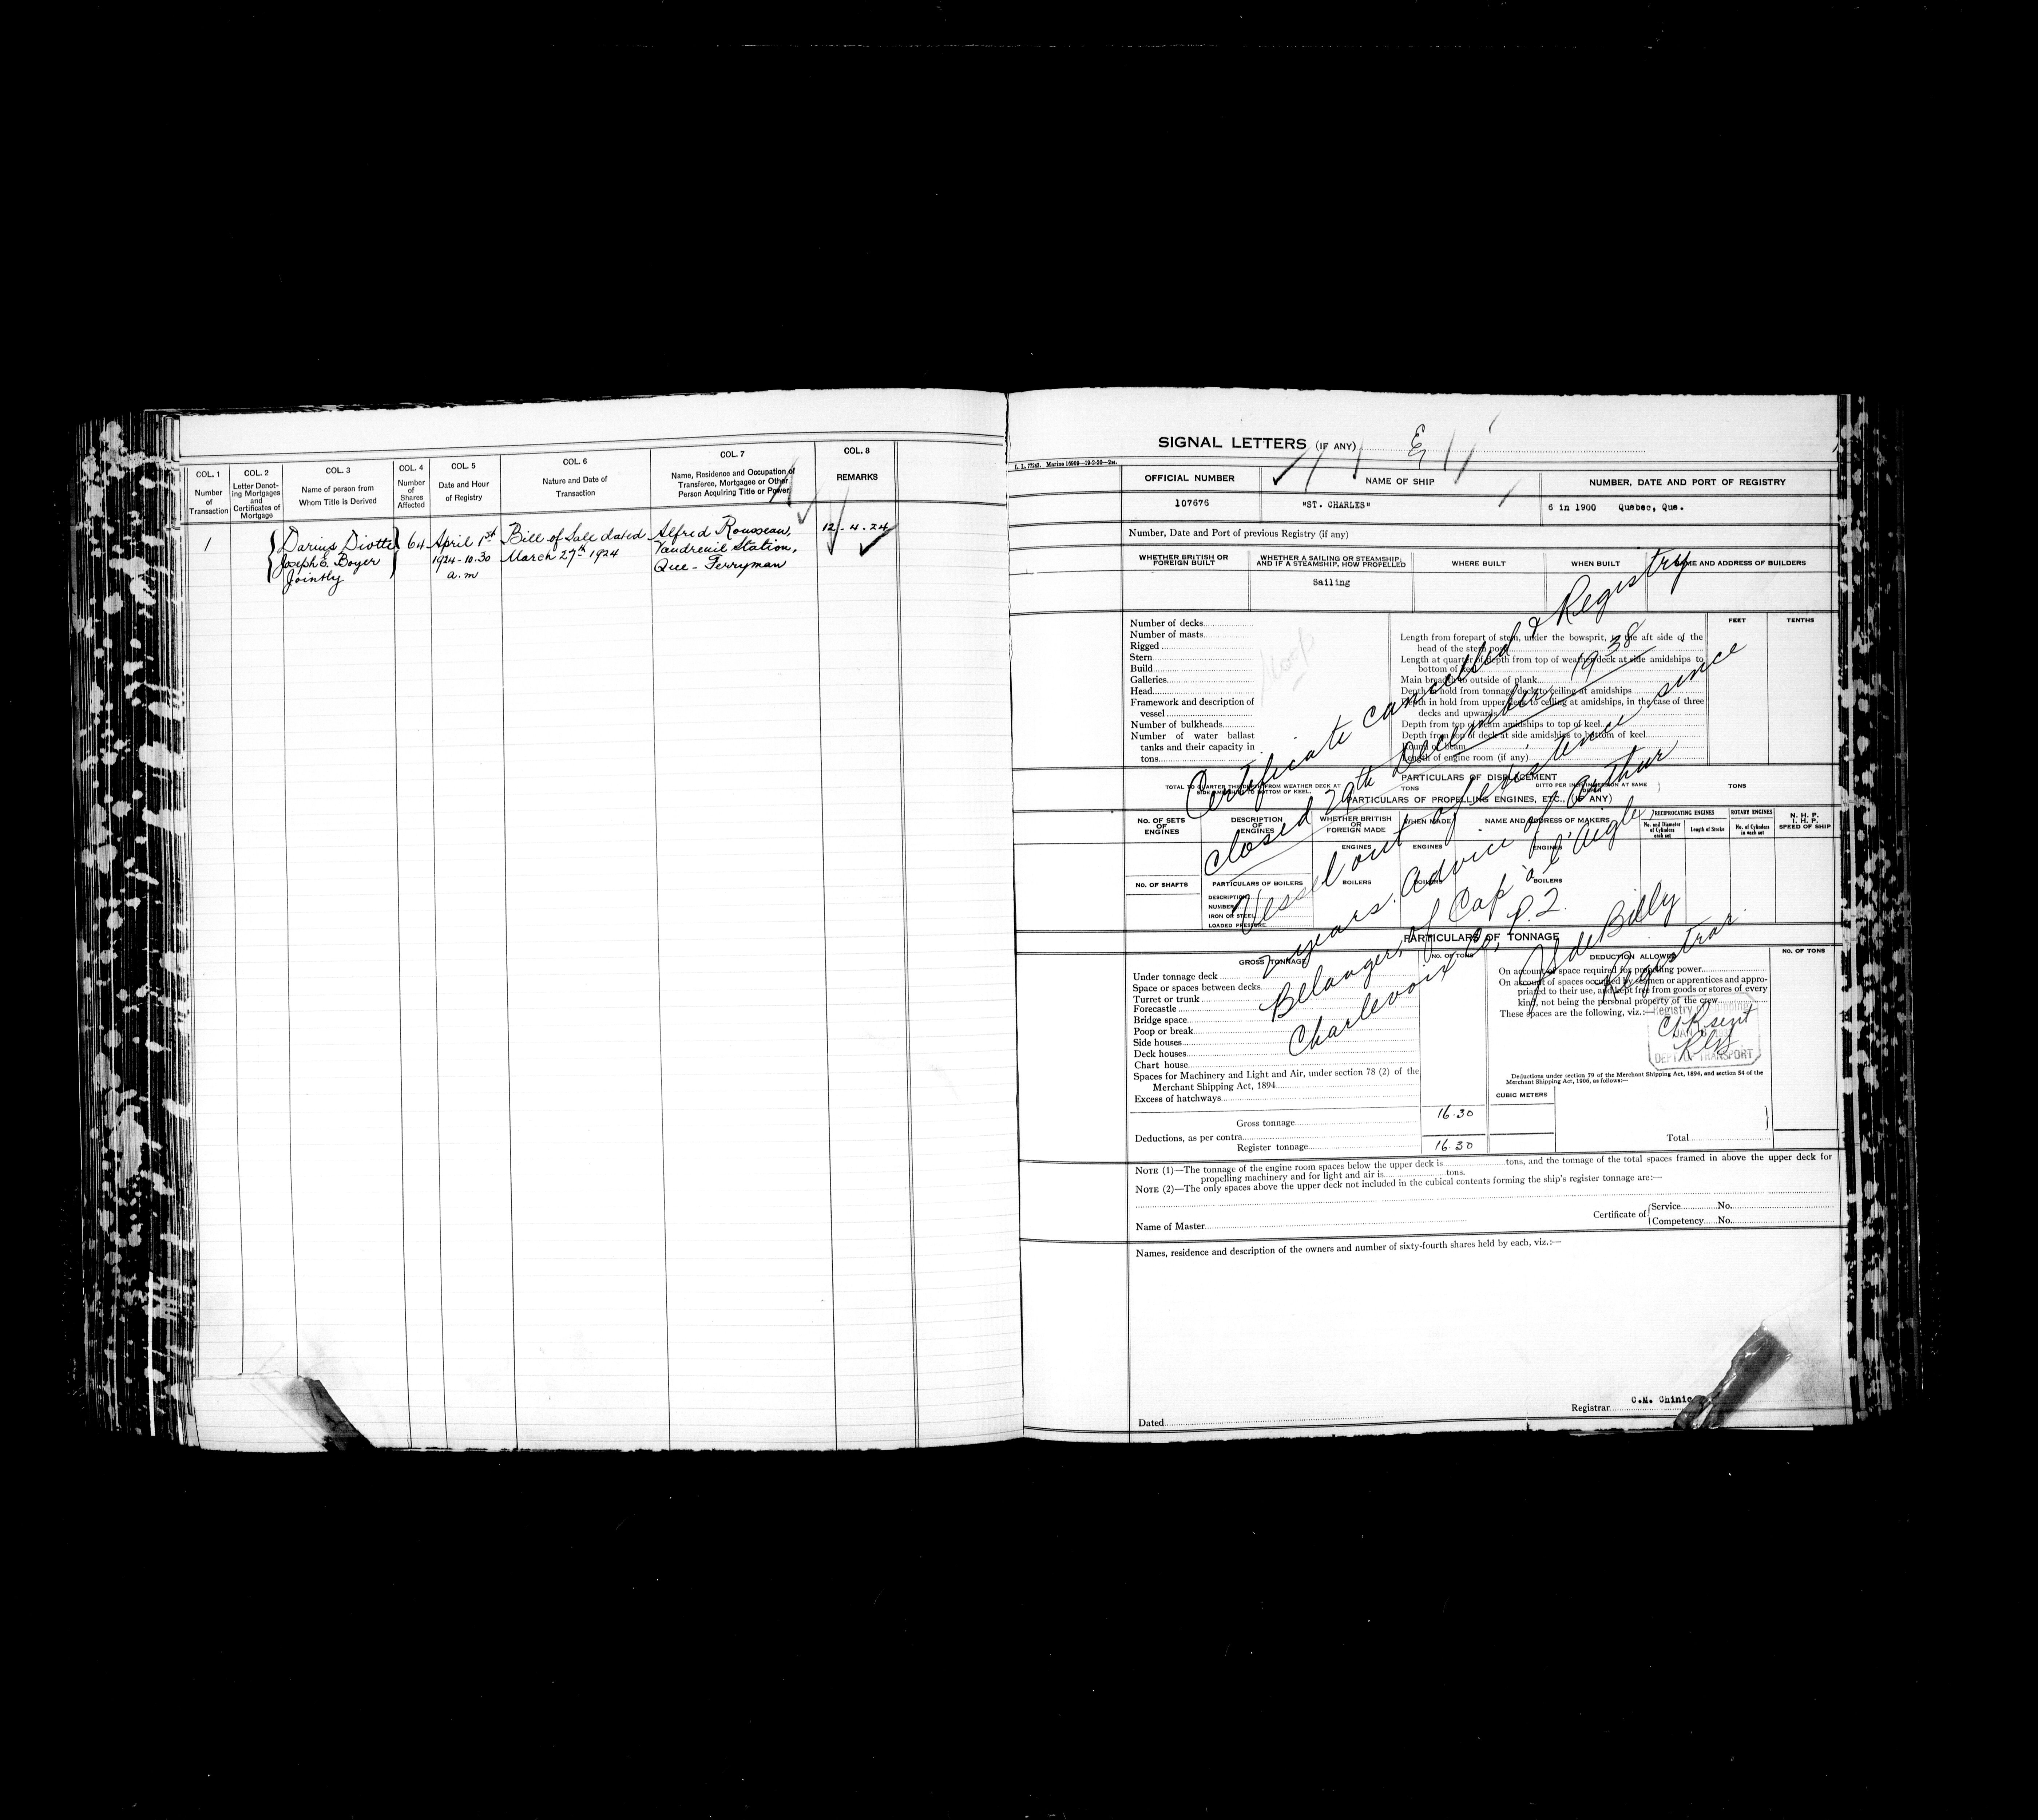 COL. 1
Number
of
Transaction
COL. 2
Letter Denot-
ing Mortgages
and
Certificates of
Mortgage
COL. 3
Name of person from
Whom Title is Derived
COL. 4
Number
of
Shares
Affected
COL. 5
Date and Hour
of Registry
COL. 6
Nature and Date of
Transaction
COL. 7
Name, Residence and Occupation of
Transferee, Mortgagee or Other
Person Acquiring Title or Power
COL. 8
REMARKS
1
Darius Diotte
Joseph E. Boyer
Jointly
64
April 1st
1924-10.30
a.m
Bill of Sale dated
March 27th 1924
Alfred Rousseau,
Vaudreuil Station,
Que - Ferryman
12-4-24
SIGNAL LETTERS (IF ANY)
L. L. 77243. Marine 16909—19-2-20—2M.
OFFICIAL NUMBER
NAME OF SHIP
NUMBER, DATE AND PORT OF REGISTRY
107676
"ST. CHARLES"
6 in 1900 Quebec, Que.
Number, Date and Port of previous Registry (if any)
WHETHER BRITISH OR
FOREIGN BUILT
WHETHER A SAILING OR STEAMSHIP;
AND IF A STEAMSHIP, HOW PROPELLED
WHERE BUILT
WHEN BUILT
NAME AND ADDRESS OF BUILDERS
Sailing
Number of decks
Number of masts
Rigged
Stern
Build
Galleries
Head
Framework and description of
vessel
Number of bulkheads
Number of water ballast
tanks and their capacity in
tons
FEET
TENTHS
Length from forepart of stem, under the bowsprit, to the aft side of the
head of the stern post
Length at quarter of depth from top of weather deck at side amidships to
bottom of keel
Main breadth to outside of plank
Depth in hold from tonnage deck to ceiling at amidships
Depth in hold from upper deck to ceiling at amidships, in the case of three
decks and upwards
Depth from top of beam amidships to top of keel
Depth from top of deck at side amidships to bottom of keel
Round of beam
Length of engine room (if any)
PARTICULARS OF DISPLACEMENT
TOTAL TO QUARTER THE DEPTH FROM WEATHER DECK AT
SIDE AMIDSHIPS TO BOTTOM OF KEEL.
TONS
DITTO PER INCH IMMERSION AT SAME
DEPTH
TONS
PARTICULARS OF PROPELLING ENGINES, ETC., (IF ANY)
No. OF SETS
OF
ENGINES
DESCRIPTION
OF
ENGINES
WHETHER BRITISH
OR
FOREIGN MADE
WHEN MADE
NAME AND ADDRESS OF MAKERS
RECIPROCATING ENGINES
No. and Diameter
of Cylinders
each set
Length of Stroke
ROTARY ENGINES
No. of Cylinders
in each set
N. H. P.
I. H. P.
SPEED OF SHIP
ENGINES
ENGINES
ENGINES
No. OF SHAFTS
PARTICULARS OF BOILERS
BOILERS
BOILERS
BOILERS
DESCRIPTION
NUMBER
IRON OR STEEL
LOADED PRESSURE
Certificate cancelled & Registry
closed 29th December, 1938
Vessel out of existence since
2 years. Advice of Arthur
Belanger, of Cap à l'Aigle
Charlevoix Co, P.Q.
deBilly
Registrar
PARTICULARS OF TONNAGE
GROSS TONNAGE
No. OF TONS
DEDUCTION ALLOWED
No. OF TONS
Under tonnage deck
Space or spaces between decks
Turret or trunk
Forecastle
Bridge space
Poop or break
Side houses
Deck houses
Chart house
Spaces for Machinery and Light and Air, under section 78 (2) of the
Merchant Shipping Act, 1894
Excess of hatchways
On account of space required for propelling power
On account of spaces occupied by seamen or apprentices and appro-
priated to their use, and kept free from goods or stores of every
kind, not being the personal property of the crew
These spaces are the following, viz.:—
Registry of Shipping
DEPT OF TRANSPORT
Deductions under section 79 of the Merchant Shipping Act, 1894, and section 54 of the
Merchant Shipping Act, 1906, as follows:—
CUBIC METERS
Gross tonnage
16.30
Deductions, as per contra
Total
Register tonnage
16.30
NOTE (1)—The tonnage of the engine room spaces below the upper deck is tons, and the tonnage of the total spaces framed in above the upper deck for
propelling machinery and for light and air is tons.
NOTE (2)—The only spaces above the upper deck not included in the cubical contents forming the ship's register tonnage are:—
Name of Master
Certificate of
Service No.
Competency No.
Names, residence and description of the owners and number of sixty-fourth shares held by each, viz.:—
C.M. Chinic
Dated
Registrar